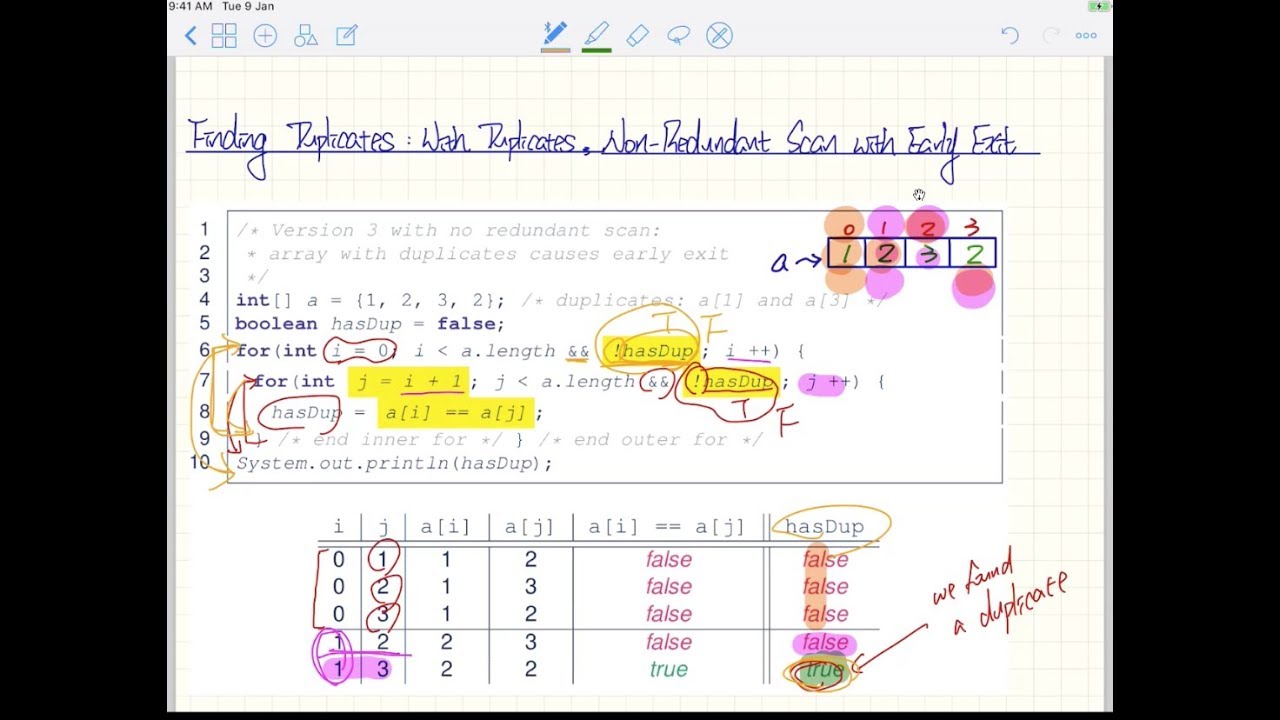 9:41 AM Tue 9 Jan
Finding Duplicates: With Duplicates, Non-Redundant Scan with Early Exit
0 1 2 3
a → 1 2 3 2
1 /* Version 3 with no redundant scan:
2 * array with duplicates causes early exit
3 */
4 int[] a = {1, 2, 3, 2}; /* duplicates: a[1] and a[3] */
5 boolean hasDup = false;
T F
6 for(int i = 0; i < a.length && !hasDup ; i ++) {
7 for(int j = i + 1 ; j < a.length && !hasDup ; j ++) {
T F
8 hasDup = a[i] == a[j];
9 } /* end inner for */ } /* end outer for */
10 System.out.println(hasDup);
i j a[i] a[j] a[i] == a[j] hasDup
0 1 1 2 false false
0 2 1 3 false false
0 3 1 2 false false
1 2 2 3 false false
1 3 2 2 true true
we found
a duplicate